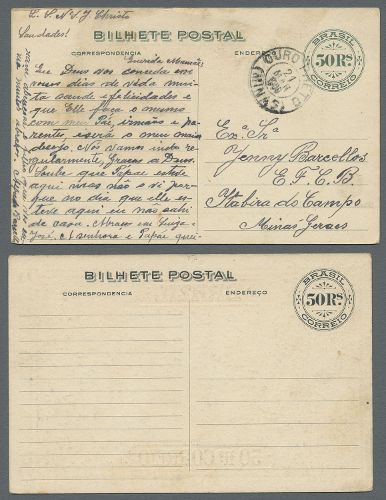 E. S. N. S. J. Christo
Saudades!
BILHETE POSTAL
CORRESPONDENCIA
ENDEREÇO
BRASIL
50 RS
CORREIO
OURO PRETO
(MINAS)
21
Querida Mamãe
Que Deus nos conceda em
novos dias de vida muita
saude e felicidades e
que Elle faça o mesmo
com meu Pai, irmãos e parentes
será o meu maior
desejo. Nós vamos indo regularmente
Graças a Deus.
Soube que Papae esteve
aqui mas não o vi porque
no dia que elle esteve
aqui eu não sahi
de casa. Abraço em Luiza
José. A senhora e Papai
Exª Srª
Jenny Barcellos
E. F. C. B.
Itabira do Campo
Minas Geraes
BILHETE POSTAL
CORRESPONDENCIA
ENDEREÇO
BRASIL
50 RS
CORREIO